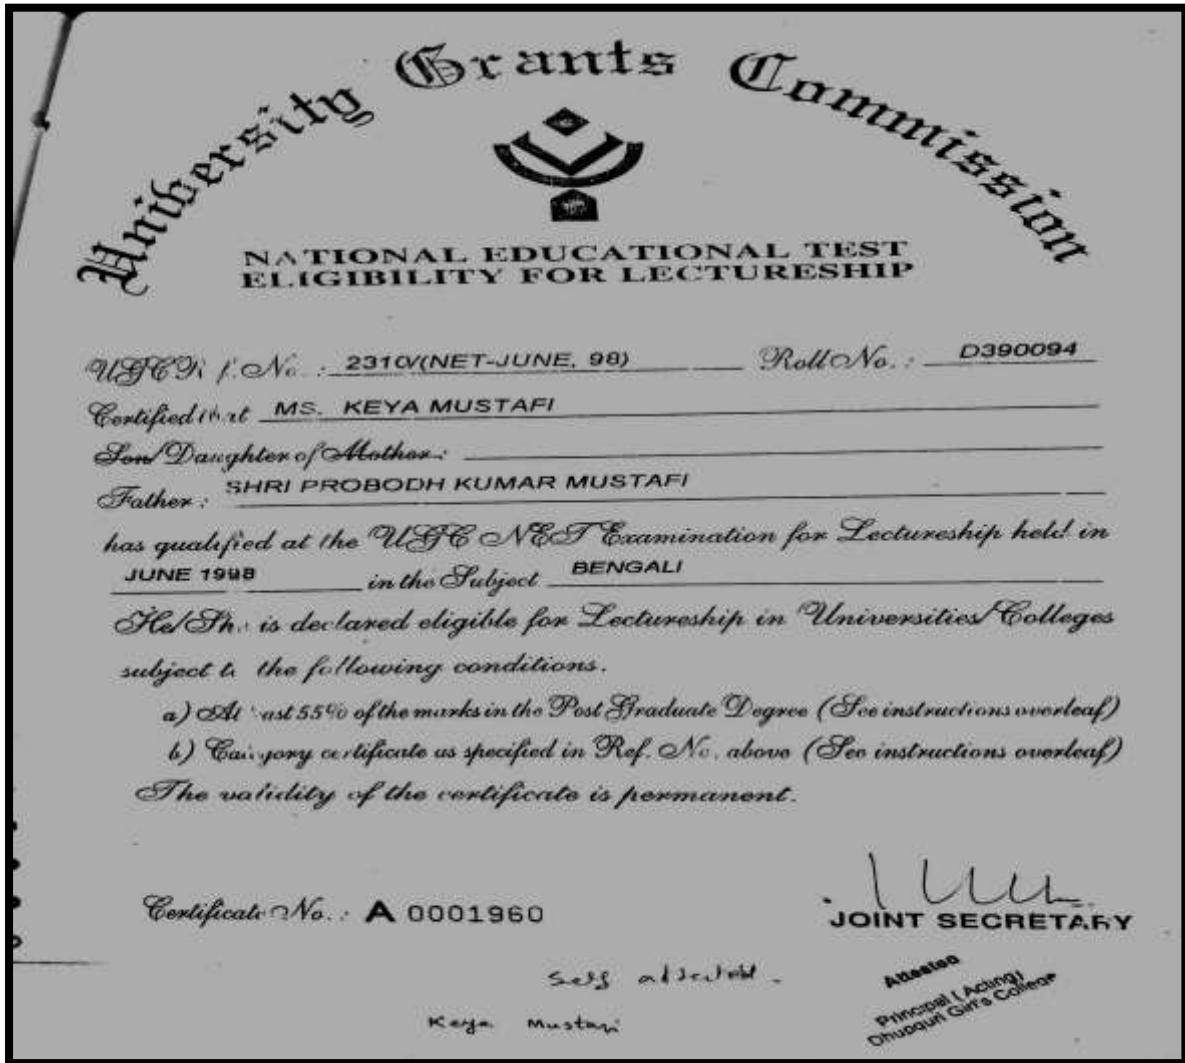 University Grants Commission
NATIONAL EDUCATIONAL TEST
ELIGIBILITY FOR LECTURESHIP
UGC Ref. No. : 2310/(NET-JUNE, 98) Roll No. : D390094
Certified that MS. KEYA MUSTAFI
Son/Daughter of Mother :
Father : SHRI PROBODH KUMAR MUSTAFI
has qualified at the UGC NET Examination for Lectureship held in
JUNE 1998 in the Subject BENGALI
He/She is declared eligible for Lectureship in Universities/Colleges
subject to the following conditions.
a) At least 55% of the marks in the Post Graduate Degree (See instructions overleaf)
b) Category certificate as specified in Ref. No. above (See instructions overleaf)
The validity of the certificate is permanent.
Certificate No. : A 0001960
JOINT SECRETARY
Self attested.
Keya Mustafi
Attested
Principal (Acting)
Dhupguri Girl's College